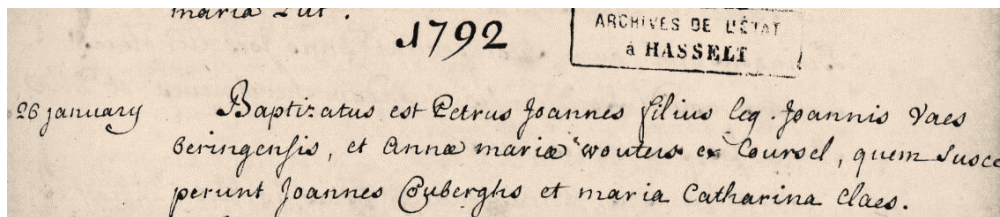 maria Put.
1792
ARCHIVES DE L'ÉTAT
à HASSELT
26 january Baptizatus est Petrus Joannes filius leg. Joannis Vaes
Beringensis, et Annæ mariæ wouters ex Coursel, quem susce
perunt Joannes Couberghs et maria Catharina Claes.